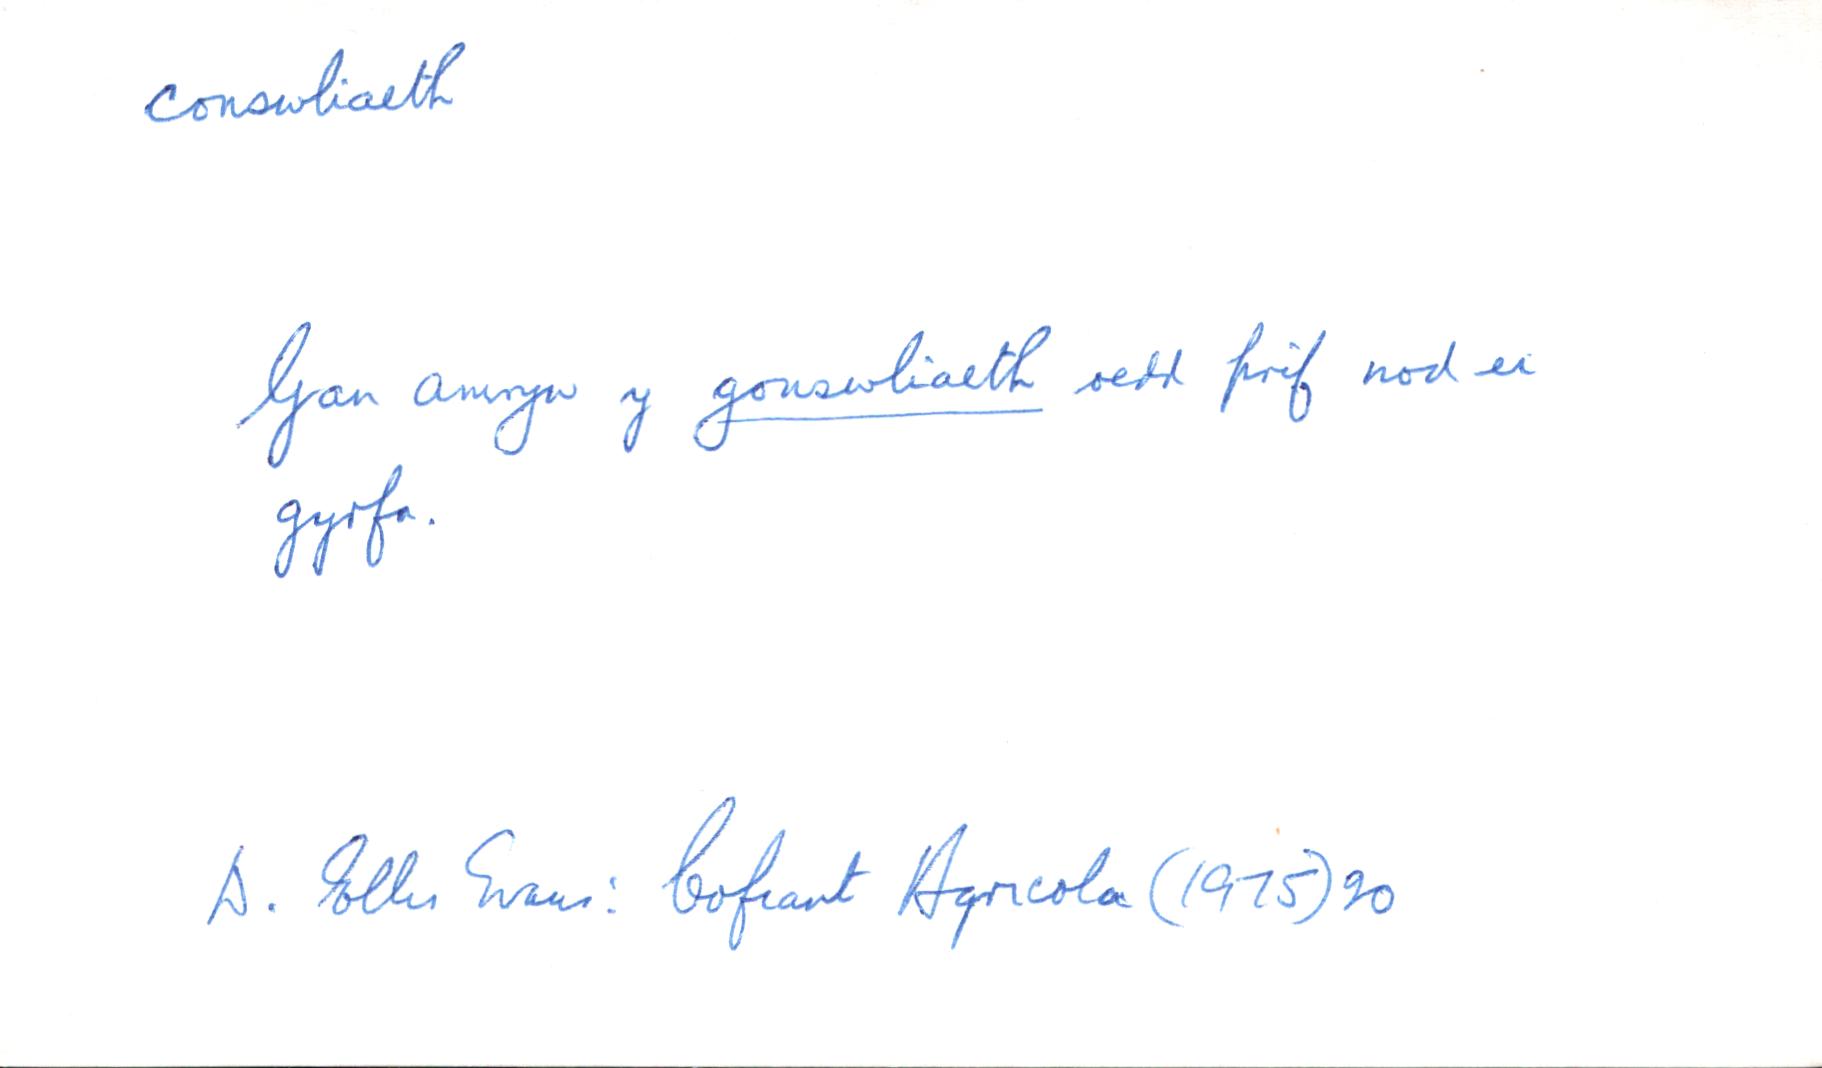 conswliaeth
Gan amryw y gonswliaeth oedd prif nod eu
gyrfa.
D. Ellis Evans: Cofiant Agricola (1975) 90